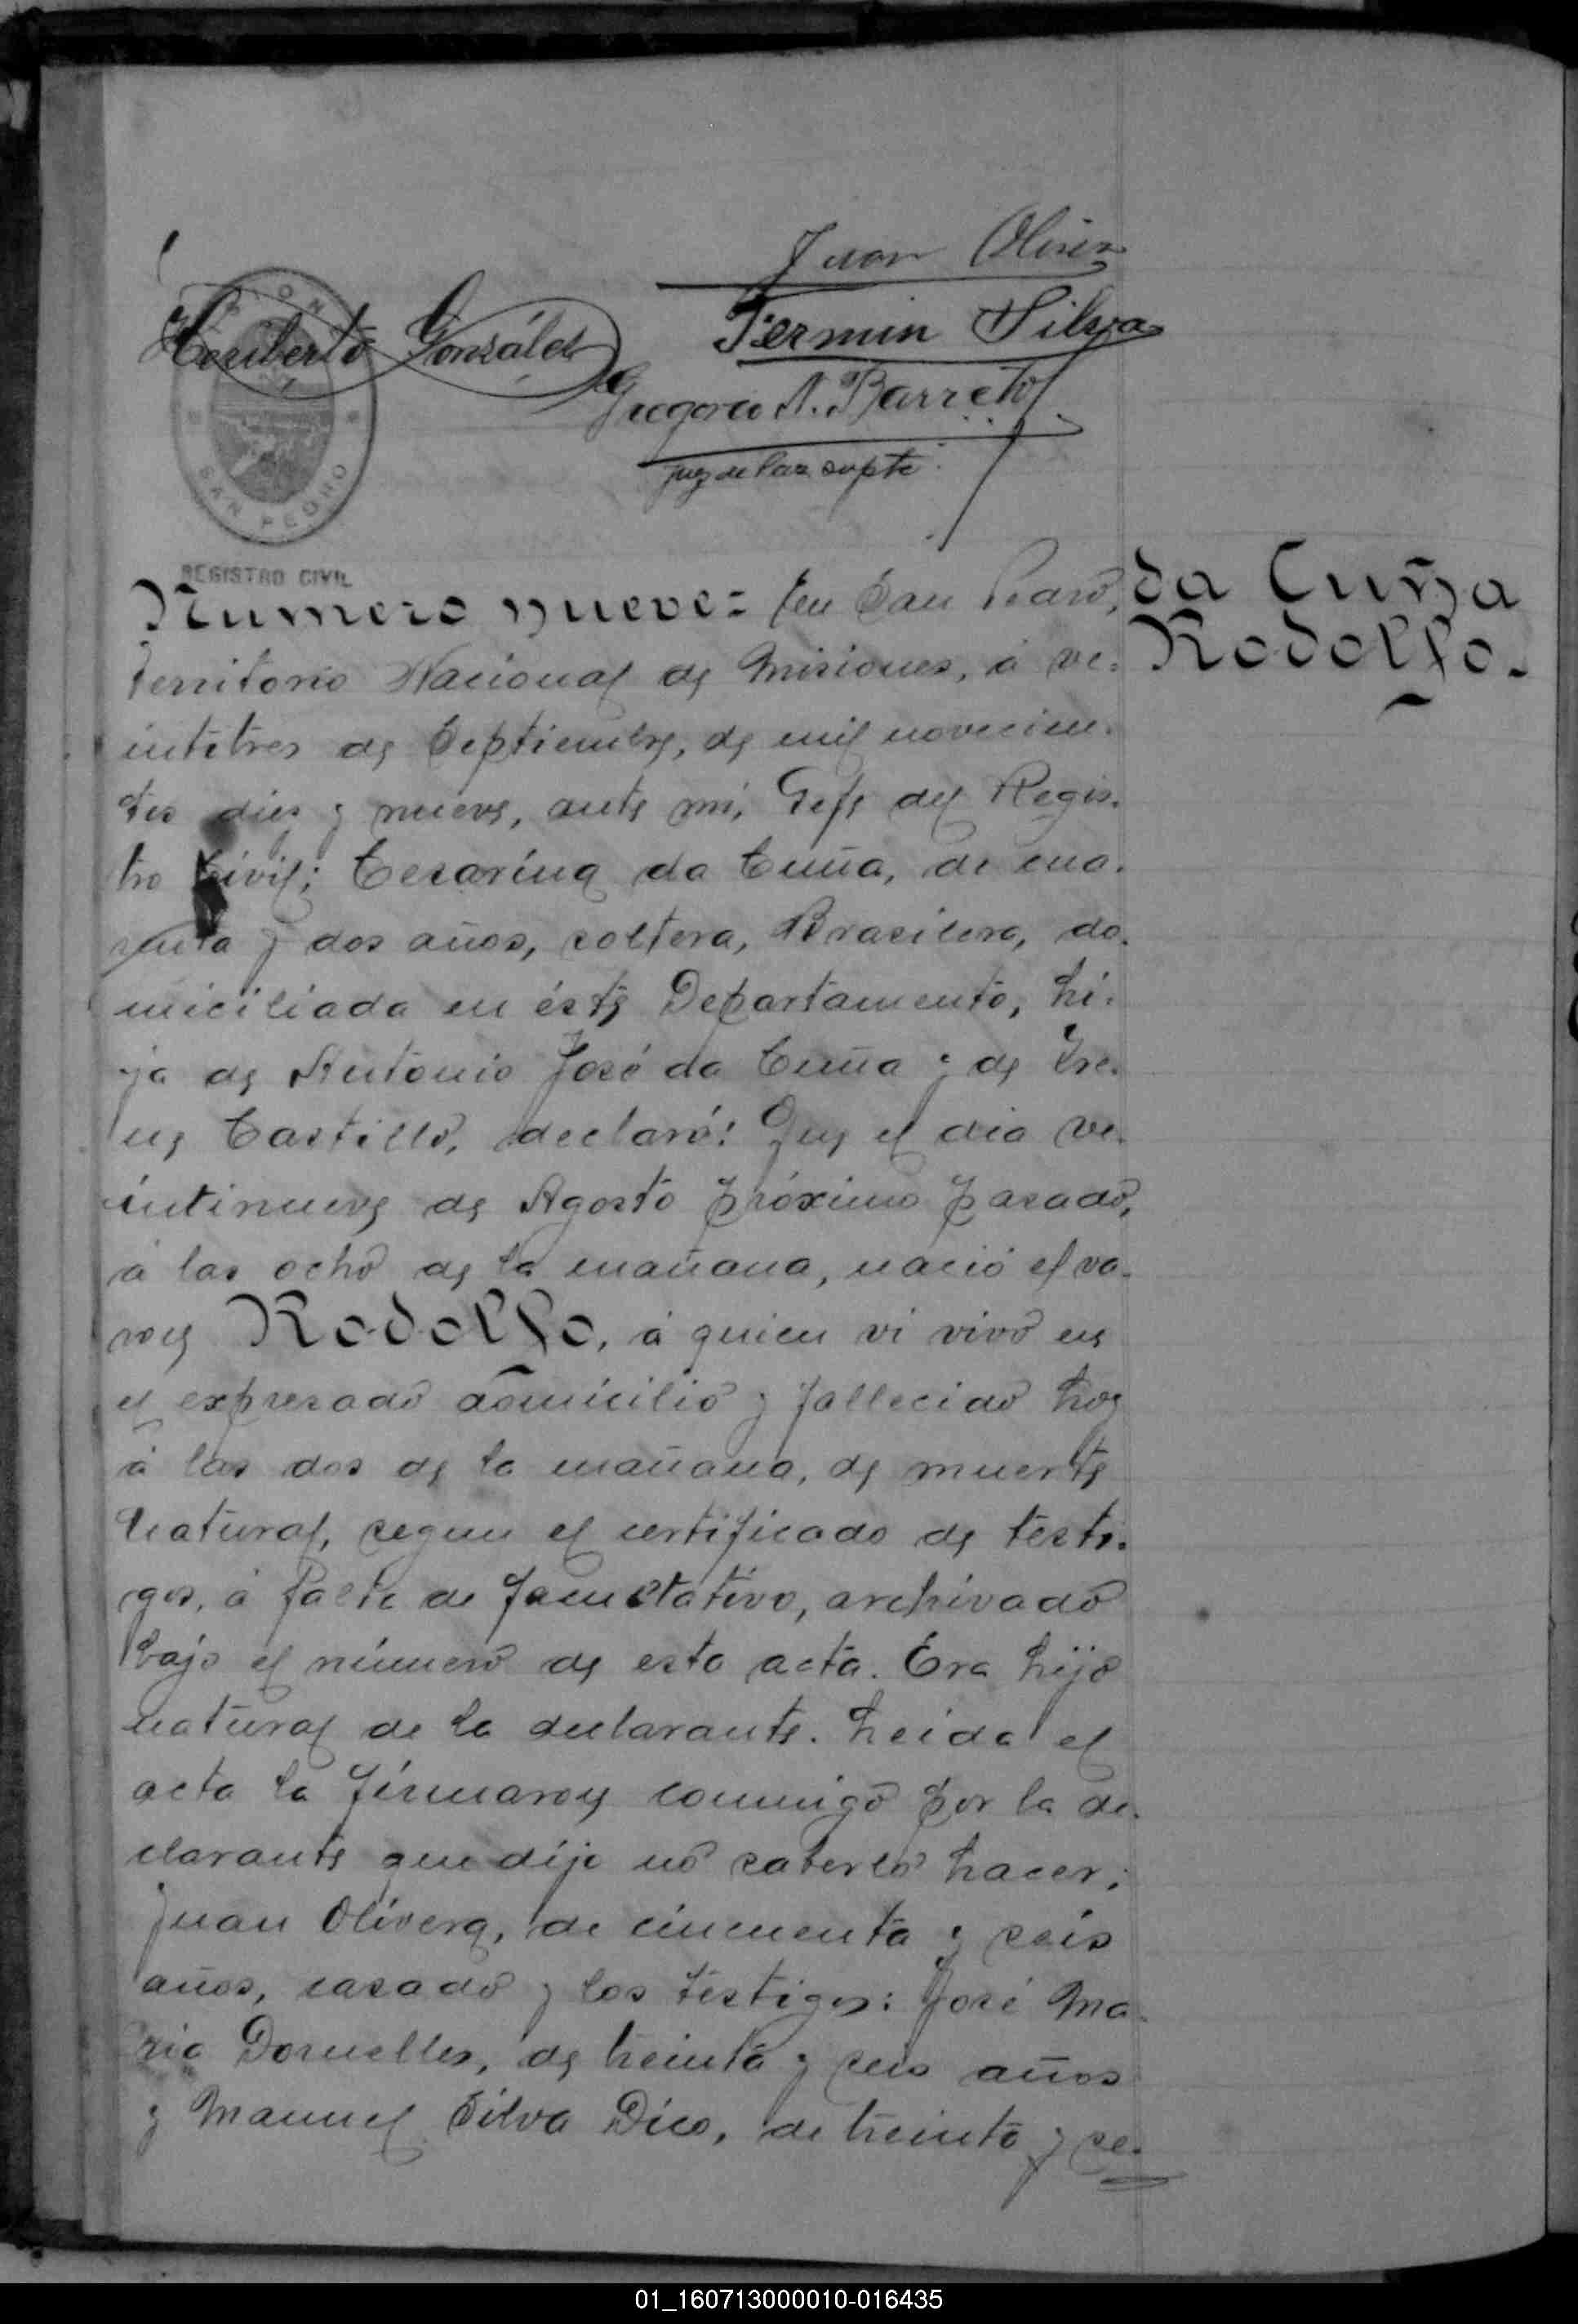 Juan Oliver
Heriberto Gonzáles
Fermin Silva
Gregorio A. Barreto
juez de Paz suplte.
SAN PEDRO
REGISTRO CIVIL
da Cuña
Rodolfo.
Numero nueve = En San Pedro,
Territorio Nacional de Misiones, á ve-
intitres de Septiembre, de mil novecien-
tos dies y nueve, ante mí, Gefe del Regis-
tro Civil; Cesarina da Cuña, de cua-
renta y dos años, soltera, Brasilera, do-
miciliada en éste Departamento, hi-
ja de Antonio José da Cuña y de Ire-
ne Castillo, declaró: Que el dia ve-
intinueve de Agosto próximo pasado,
á las ocho de la mañana, nació el va-
ron Rodolfo, á quien vi vivo en
el expresado domicilio y fallecido hoy
á las dos de la mañana, de muerte
natural, segun el certificado de testi-
gos, á falta de facultativo, archivado
bajo el número de esta acta. Era hijo
natural de la declarante. Leida el
acta la firmaron conmigo por la de-
clarante que dijo no saberlo hacer;
Juan Olivera, de cincuenta y seis
años, casado y los testigos: José Ma-
ria Dornelles, de treinta y seis años
y Manuel Silva Dico, de treinta y se-
01_160713000010-016435